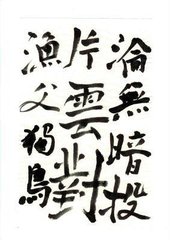 淪無暗投
片雲對
漁父獨鳥